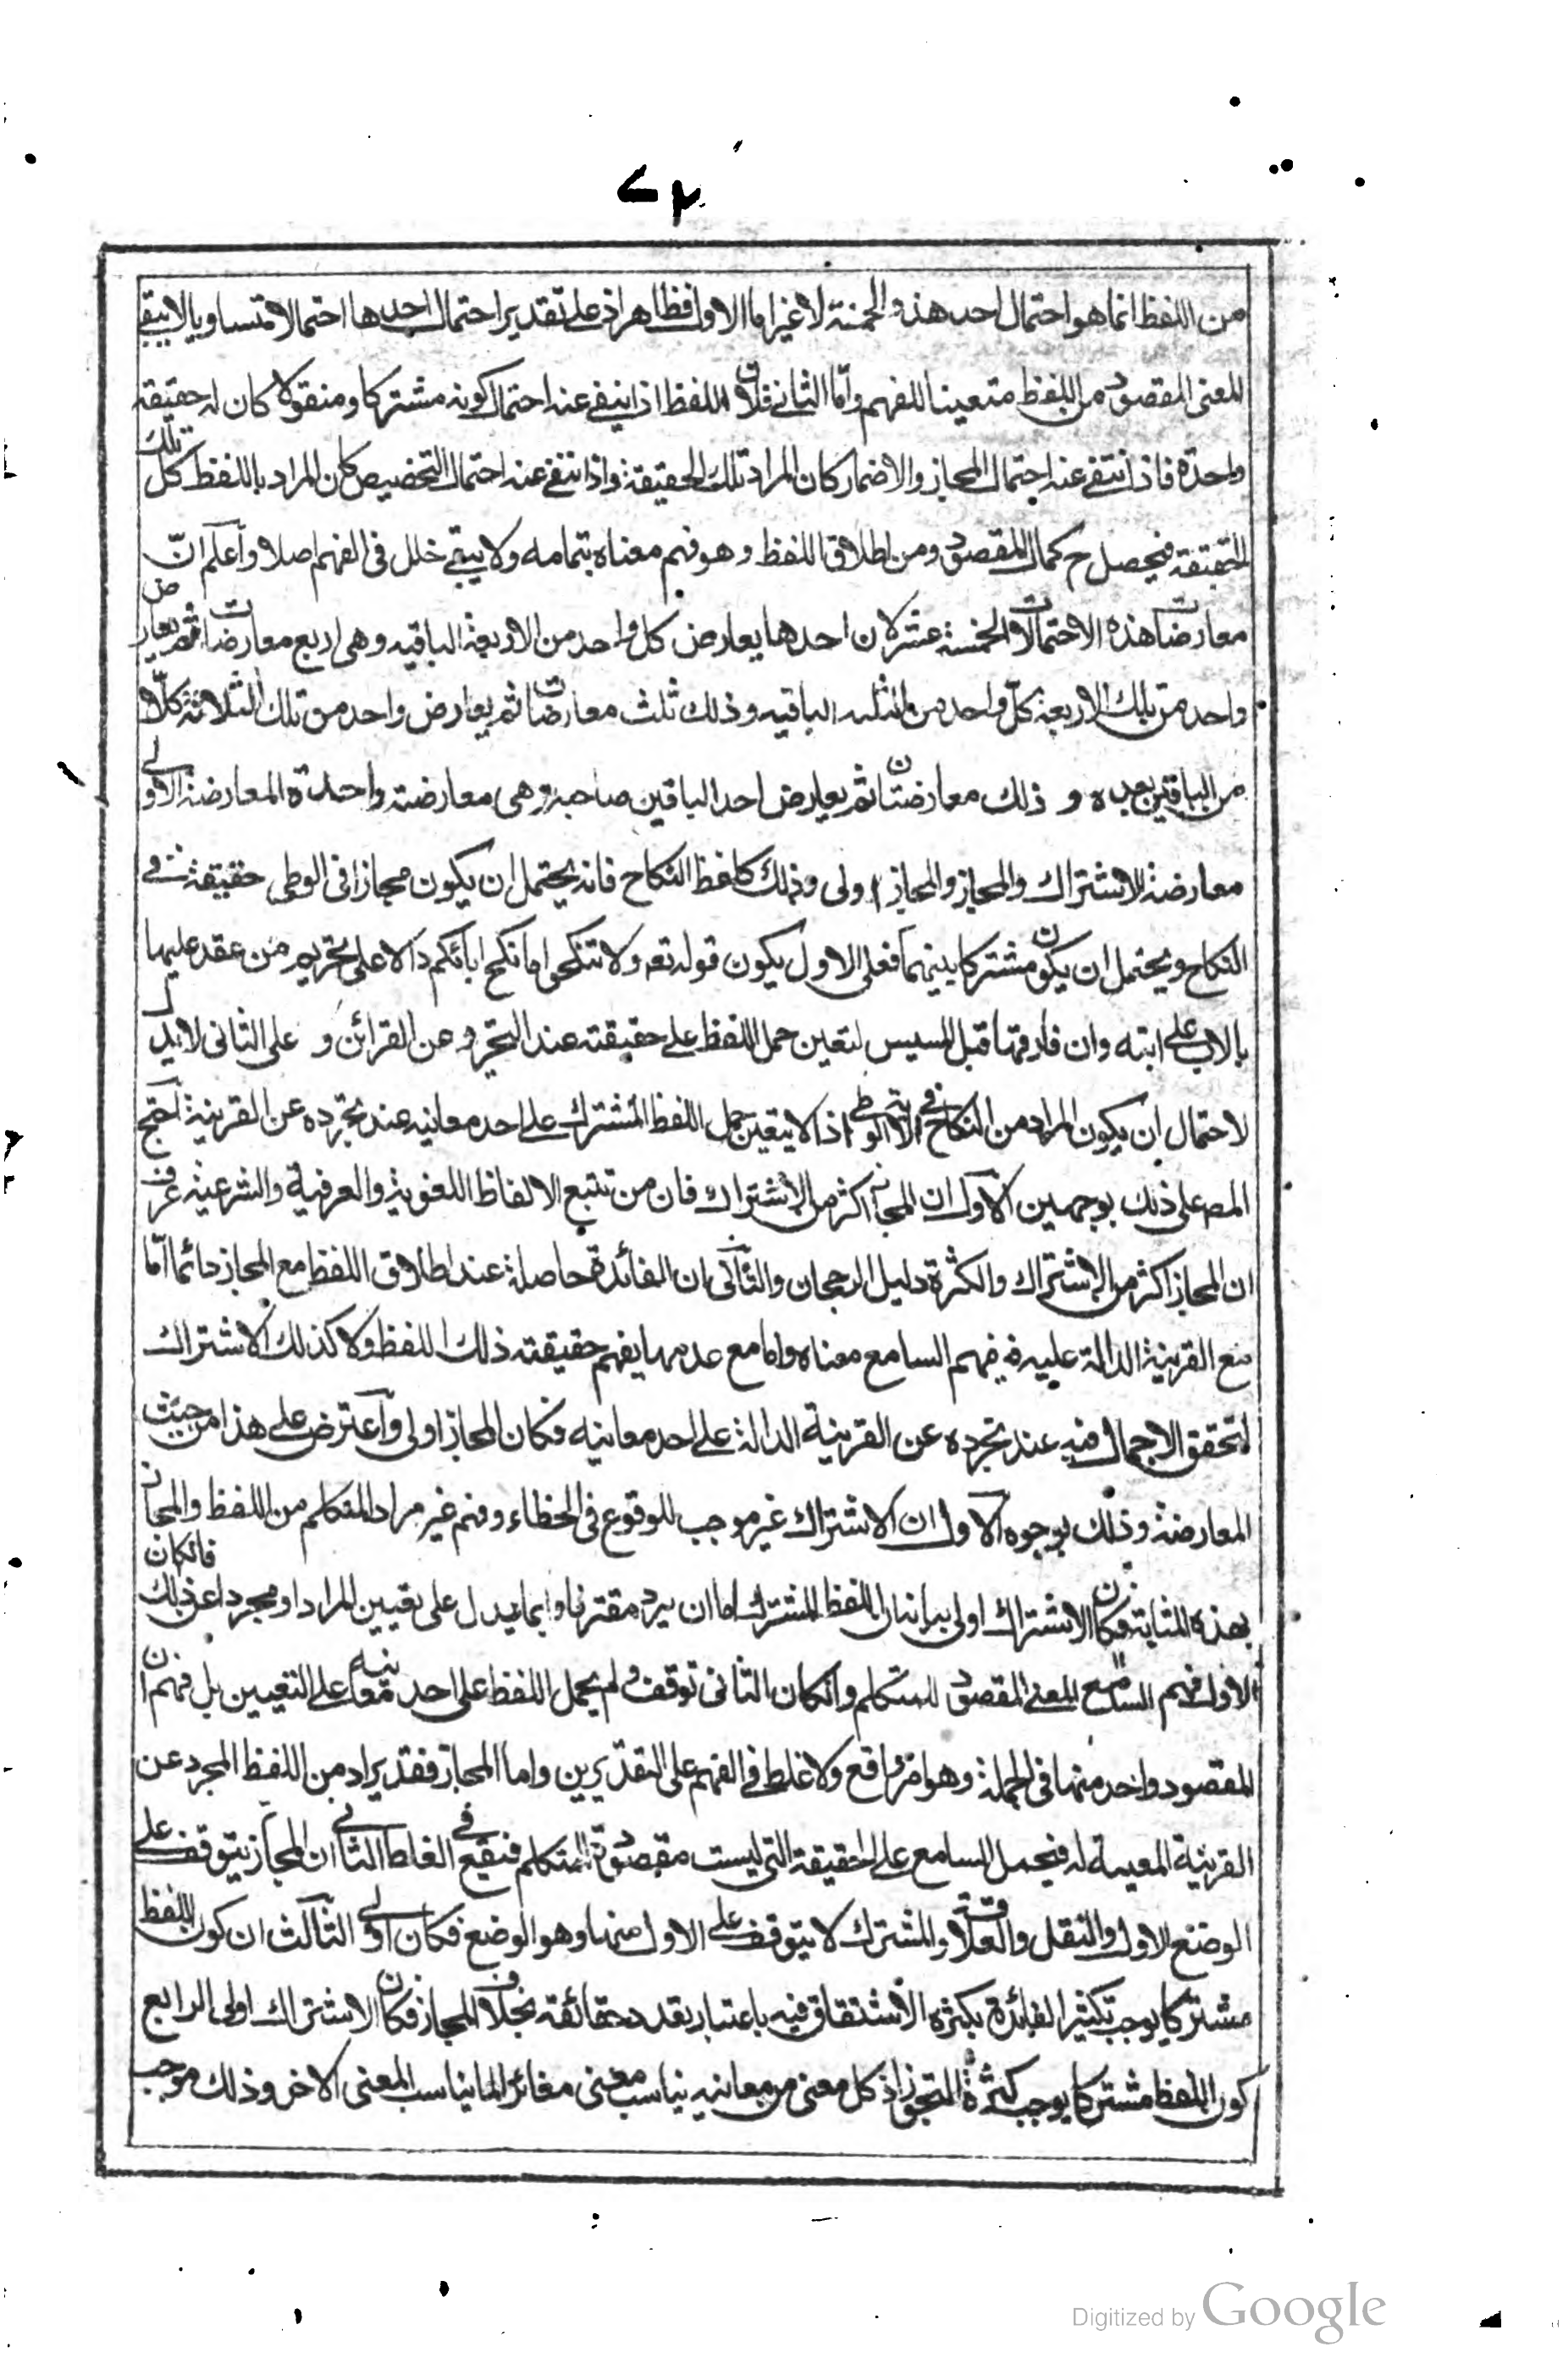 ٧٢
من اللفظ انما هو احتمال احد هذه الخمسة لا غير اما الاول فظاهر اذ على تقدير احتمال احدها احتمالا متساويا لا يبقى
المعنى المقصود من اللفظ متعينا للفهم وامّا الثانى فلان اللفظ اذا نيفى عنه احتمال كونه مشتركا ومنقولا كان له حقيقة
واحدة فاذا انتفى عنه احتمال المجاز والاضمار كان المراد تلك الحقيقة واذا انتفى عنه احتمال التخصيص كان المراد باللفظ كل تلك
الحقيقة فيحصل ح كمال المقصود من اطلاق اللفظ وهو فهم معناه بتمامه ولا يبقى خلل فى الفهم اصلا واعلم انّ
معارضات هذه الاحتمالات الخمسة عشر لان احدها يعارض كل واحد من الاربعة الباقيه وهى اربع معارضات ثم يعارض
واحد من تلك الاربعة كلّ واحد من الثلثه الباقيه وذلك ثلث معارضات ثم يعارض واحد من تلك الثلاثة كلّا
من الباقين بعده و ذلك معارضتان ثم يعارض احد الباقين صاحبه وهى معارضة واحدة المعارضة الاولى
معارضة الاشتراك والمجاز والمجاز اولى وذلك كلفظ النكاح فانه يحتمل ان يكون مجازا فى الوطى حقيقة فى
النكاح ويحتمل ان يكون مشتركا بينهما فعلى الاول يكون قوله تعه ولا تنكحوا ما نكح ابائكم دالا على تحريم من عقد عليها
بالاب على ابنه وان فارقها قبل المسيس لتعين حمل اللفظ على حقيقته عند التجرد عن القرائن و على الثانى لا يدل
لاحتمال ان يكون المراد من النكاح فى الاية الوطى اذ لا يتعين حمل اللفظ المشترك على احد معانيه عند تجرده عن القرينة احتج
المص على ذلك بوجهين الاول ان المجاز اكثر من الاشتراك فان من تتبع الالفاظ اللغوية والعرفية والشرعية عرف
ان المجاز اكثر من الاشتراك والكثرة دليل الرجحان والثانى ان الفائدة حاصلة عند اطلاق اللفظ مع المجاز دائما امّا
مع القرينة الدالة عليه فيفهم السامع معناه واما مع عدمها يفهم حقيقته ذلك اللفظ ولا كذلك الاشتراك
لتحقق الاجمال فيه عند تجرده عن القرينة الدالة على احد معانيه فكان المجاز اولى واعترض على هذا من حيث
المعارضة وذلك بوجوه الاول ان الاشتراك غير موجب للوقوع فى الخطاء وفهم غير مراد المتكلم من اللفظ والمجاز
بهذه المثابة فكان الاشتراك اولى بيانه ان اللفظ المشترك اما ان يرد مقترنا بما يدل على تعيين المراد او مجردا عن ذلك فانكان
الاول فهم السامع المعنى المقصود للمتكلم وانكان الثانى توقف ولم يحمل اللفظ على احد معانيه على التعيين بل فهم ان
المقصود واحد منهما فى الجملة وهو امر واقع ولا غلط فى الفهم على التقديرين واما المجاز فقد يراد من اللفظ المجرد عن
القرينة المعينة له فيحمل السامع على الحقيقة التى ليست مقصودة للمتكلم فيقع فى الغلط الثانى ان المجاز يتوقف على
الوضع الاول والنقل والعلاقة والمشترك لا يتوقف على الاول منها وهو الوضع فكان اولى الثالث ان كون اللفظ
مشتركا يوجب تكثير الفائدة بكثرة الاشتقاق فيه باعتبار تعدد حقائقه بخلاف المجاز فكان الاشتراك اولى الرابع
كون اللفظ مشتركا يوجب كثرة التجوز اذ كل معنى من معانيه يناسب معنى مغائرا لما يناسب المعنى الاخر وذلك موجب
Digitized by Google